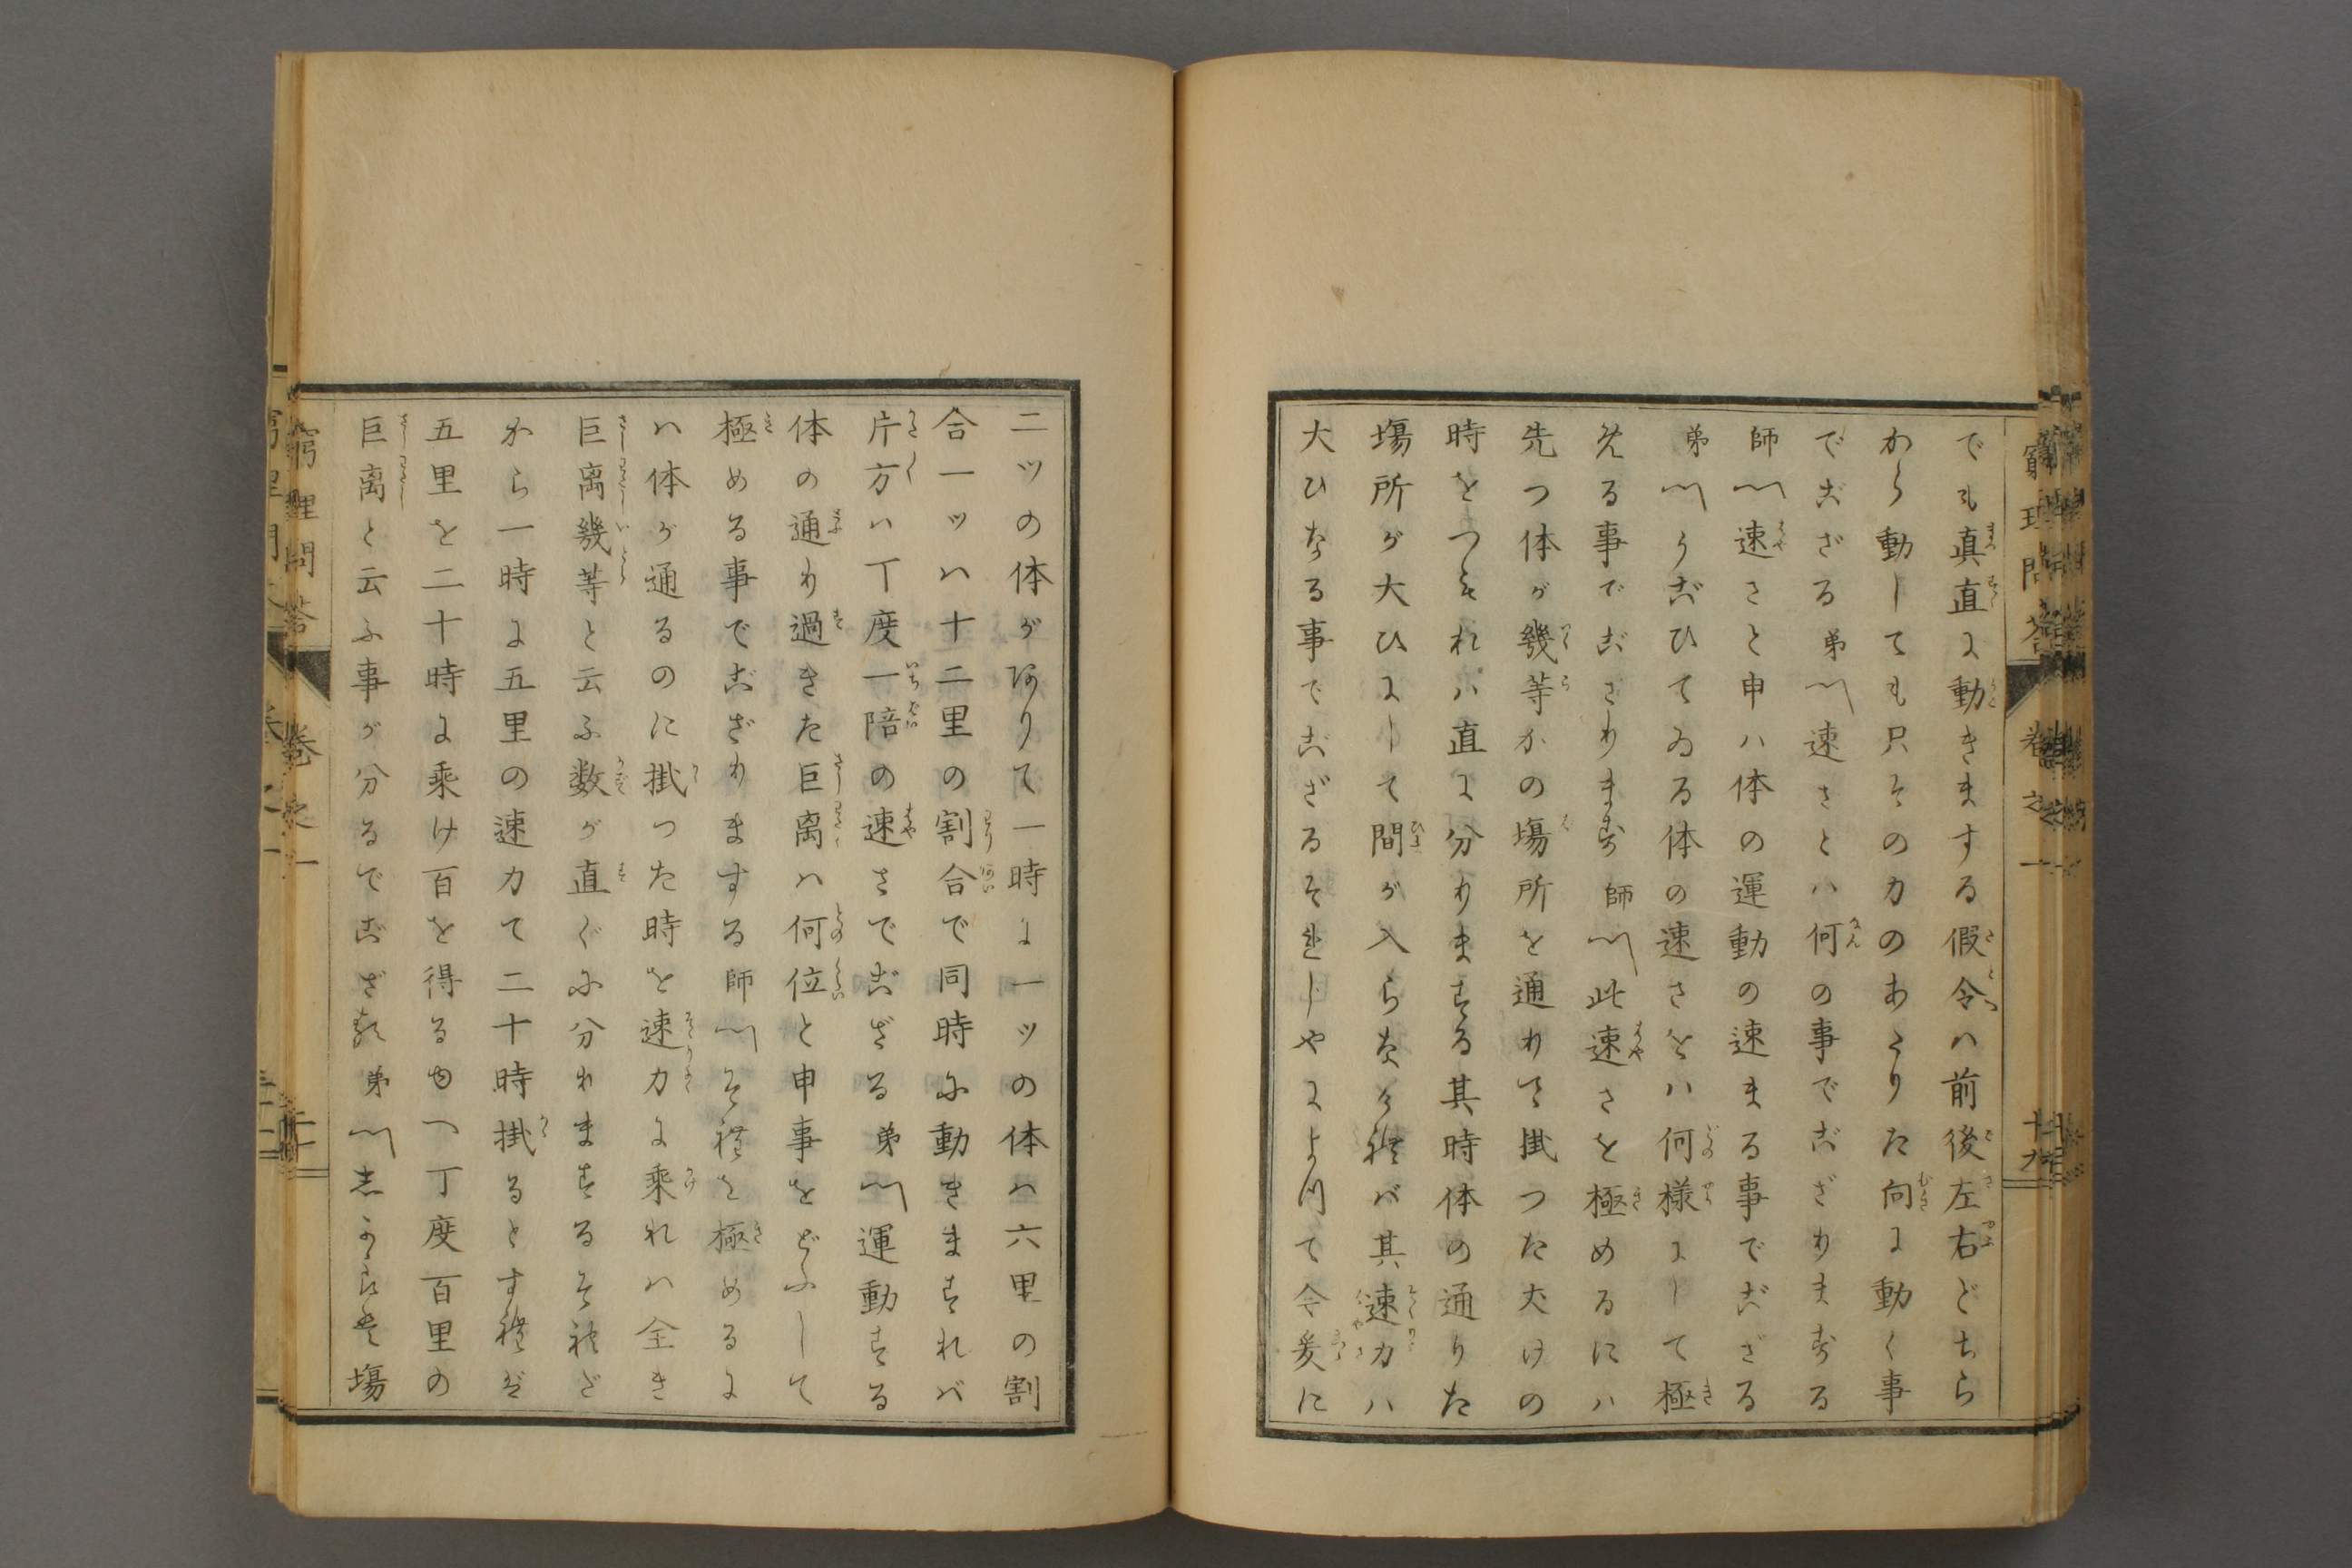 でも真直に動きまする假令ハ前後左右どちら
から動しても只その力のあたりた向に動く事
でござる 弟〽速さとハ何の事でござりまする
師〽速さと申ハ体の運動の速まる事でござる
弟〽うごひてゐる体の速さをハ何様にして極
める事でござります 師〽此速さを極めるにハ
先つ体が幾等かの塲所を通りて掛つた丈けの
時をつもれハ直に分りまする其時体の通りた
塲所が大ひにして間が入らなければ其速力ハ
大ひなる事でござるそれじやによつて今爰に
二ツの体がありて一時に一ツの体ハ六里の割
合一ツハ十二里の割合で同時に動きますれバ
片方ハ丁度一陪の速さでござる 弟〽運動する
体の通り過きた巨离ハ何位と申事をどふして
極める事でござりまする 師〽それを極めるに
ハ体が通るのに掛つた時を速力に乘れハ全き
巨离幾等と云ふ数が直ぐに分りまするそれで
から一時に五里の速力て二十時掛るとすれば
五里を二十時に乘け百を得るゆへ丁度百里の
巨离と云ふ事が分るでござる 弟〽志からば塲
窮理問答 巻之一